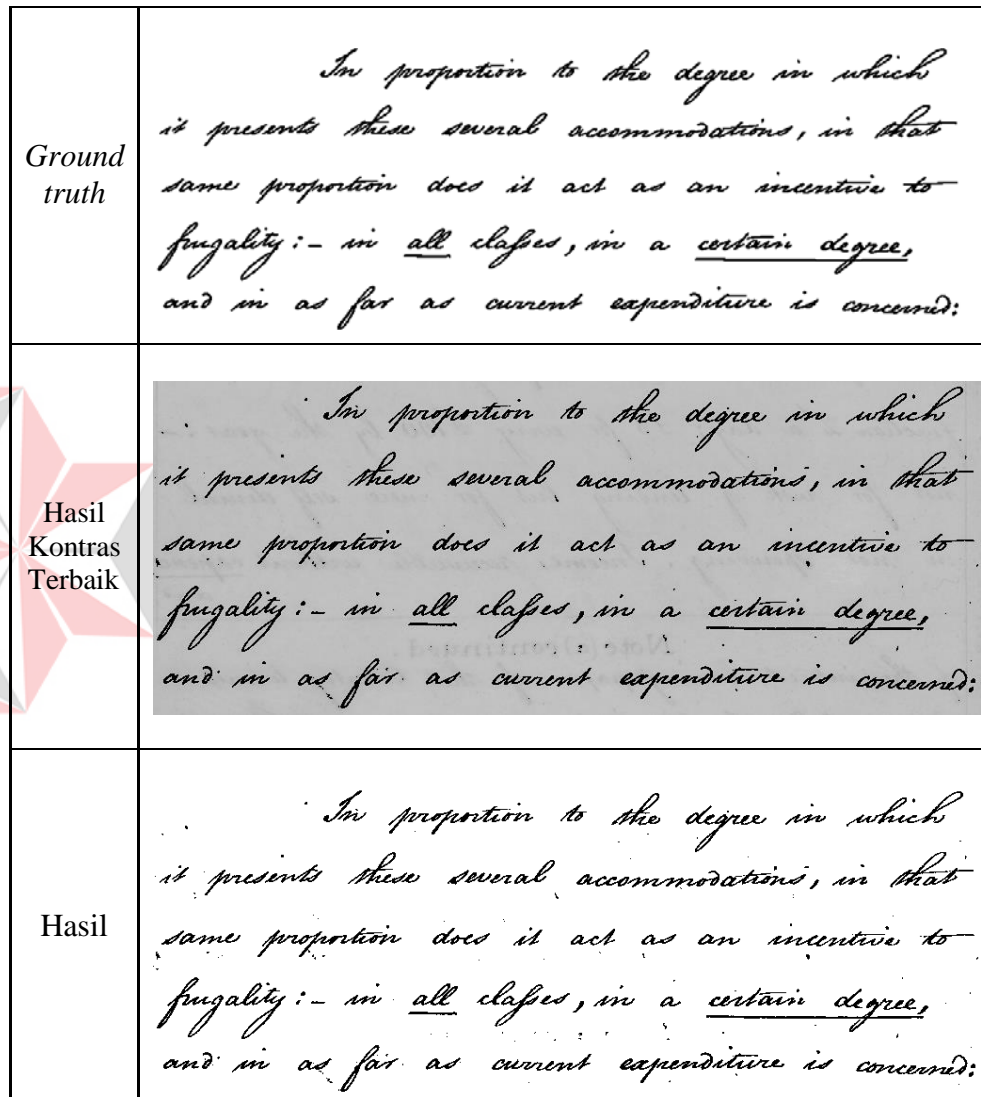 Ground
truth
In proportion to the degree in which
it presents these several accommodations, in that
same proportion does it act as an incentive to
frugality:- in all claſses, in a certain degree,
and in as far as current expenditure is concerned:
Hasil
Kontras
Terbaik
In proportion to the degree in which
it presents these several accommodations, in that
same proportion does it act as an incentive to
frugality:- in all claſses, in a certain degree,
Note (a) continued.
and in as far as current expenditure is concerned:
Hasil
In proportion to the degree in which
it presents these several accommodations, in that
same proportion does it act as an incentive to
frugality:- in all claſses, in a certain degree,
and in as far as current expenditure is concerned: